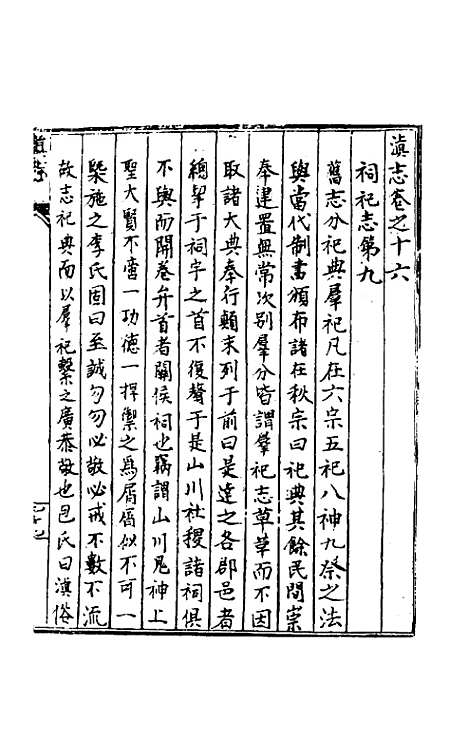 滇志卷之十六
祠祀志第九
舊志分祀典羣祀凡在六宗五祀八神九祭之法
與當代制書頒布諸在秋宗曰祀典其餘民間崇
奉建置無常次別羣分皆謂羣祀志草草而不因
取諸大典奉行顛末列于前曰是達之各郡邑者
總挈于祠宇之首不復贅于是山川社稷諸祠俱
不與而開卷弁首者關侯祠也竊謂山川鬼神上
聖大賢不啻一功德一捍禦之為屑屑似不可一
槩施之李氏固曰至誠勿勿必敬必戒不數不流
故志祀典而以羣祀繫之廣恭敬也包氏曰滇俗
滇志